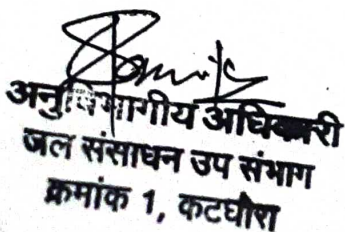 अनुविभागीय अधिकारी
जल संसाधन उप संभाग
क्रमांक 1, कटघोरा